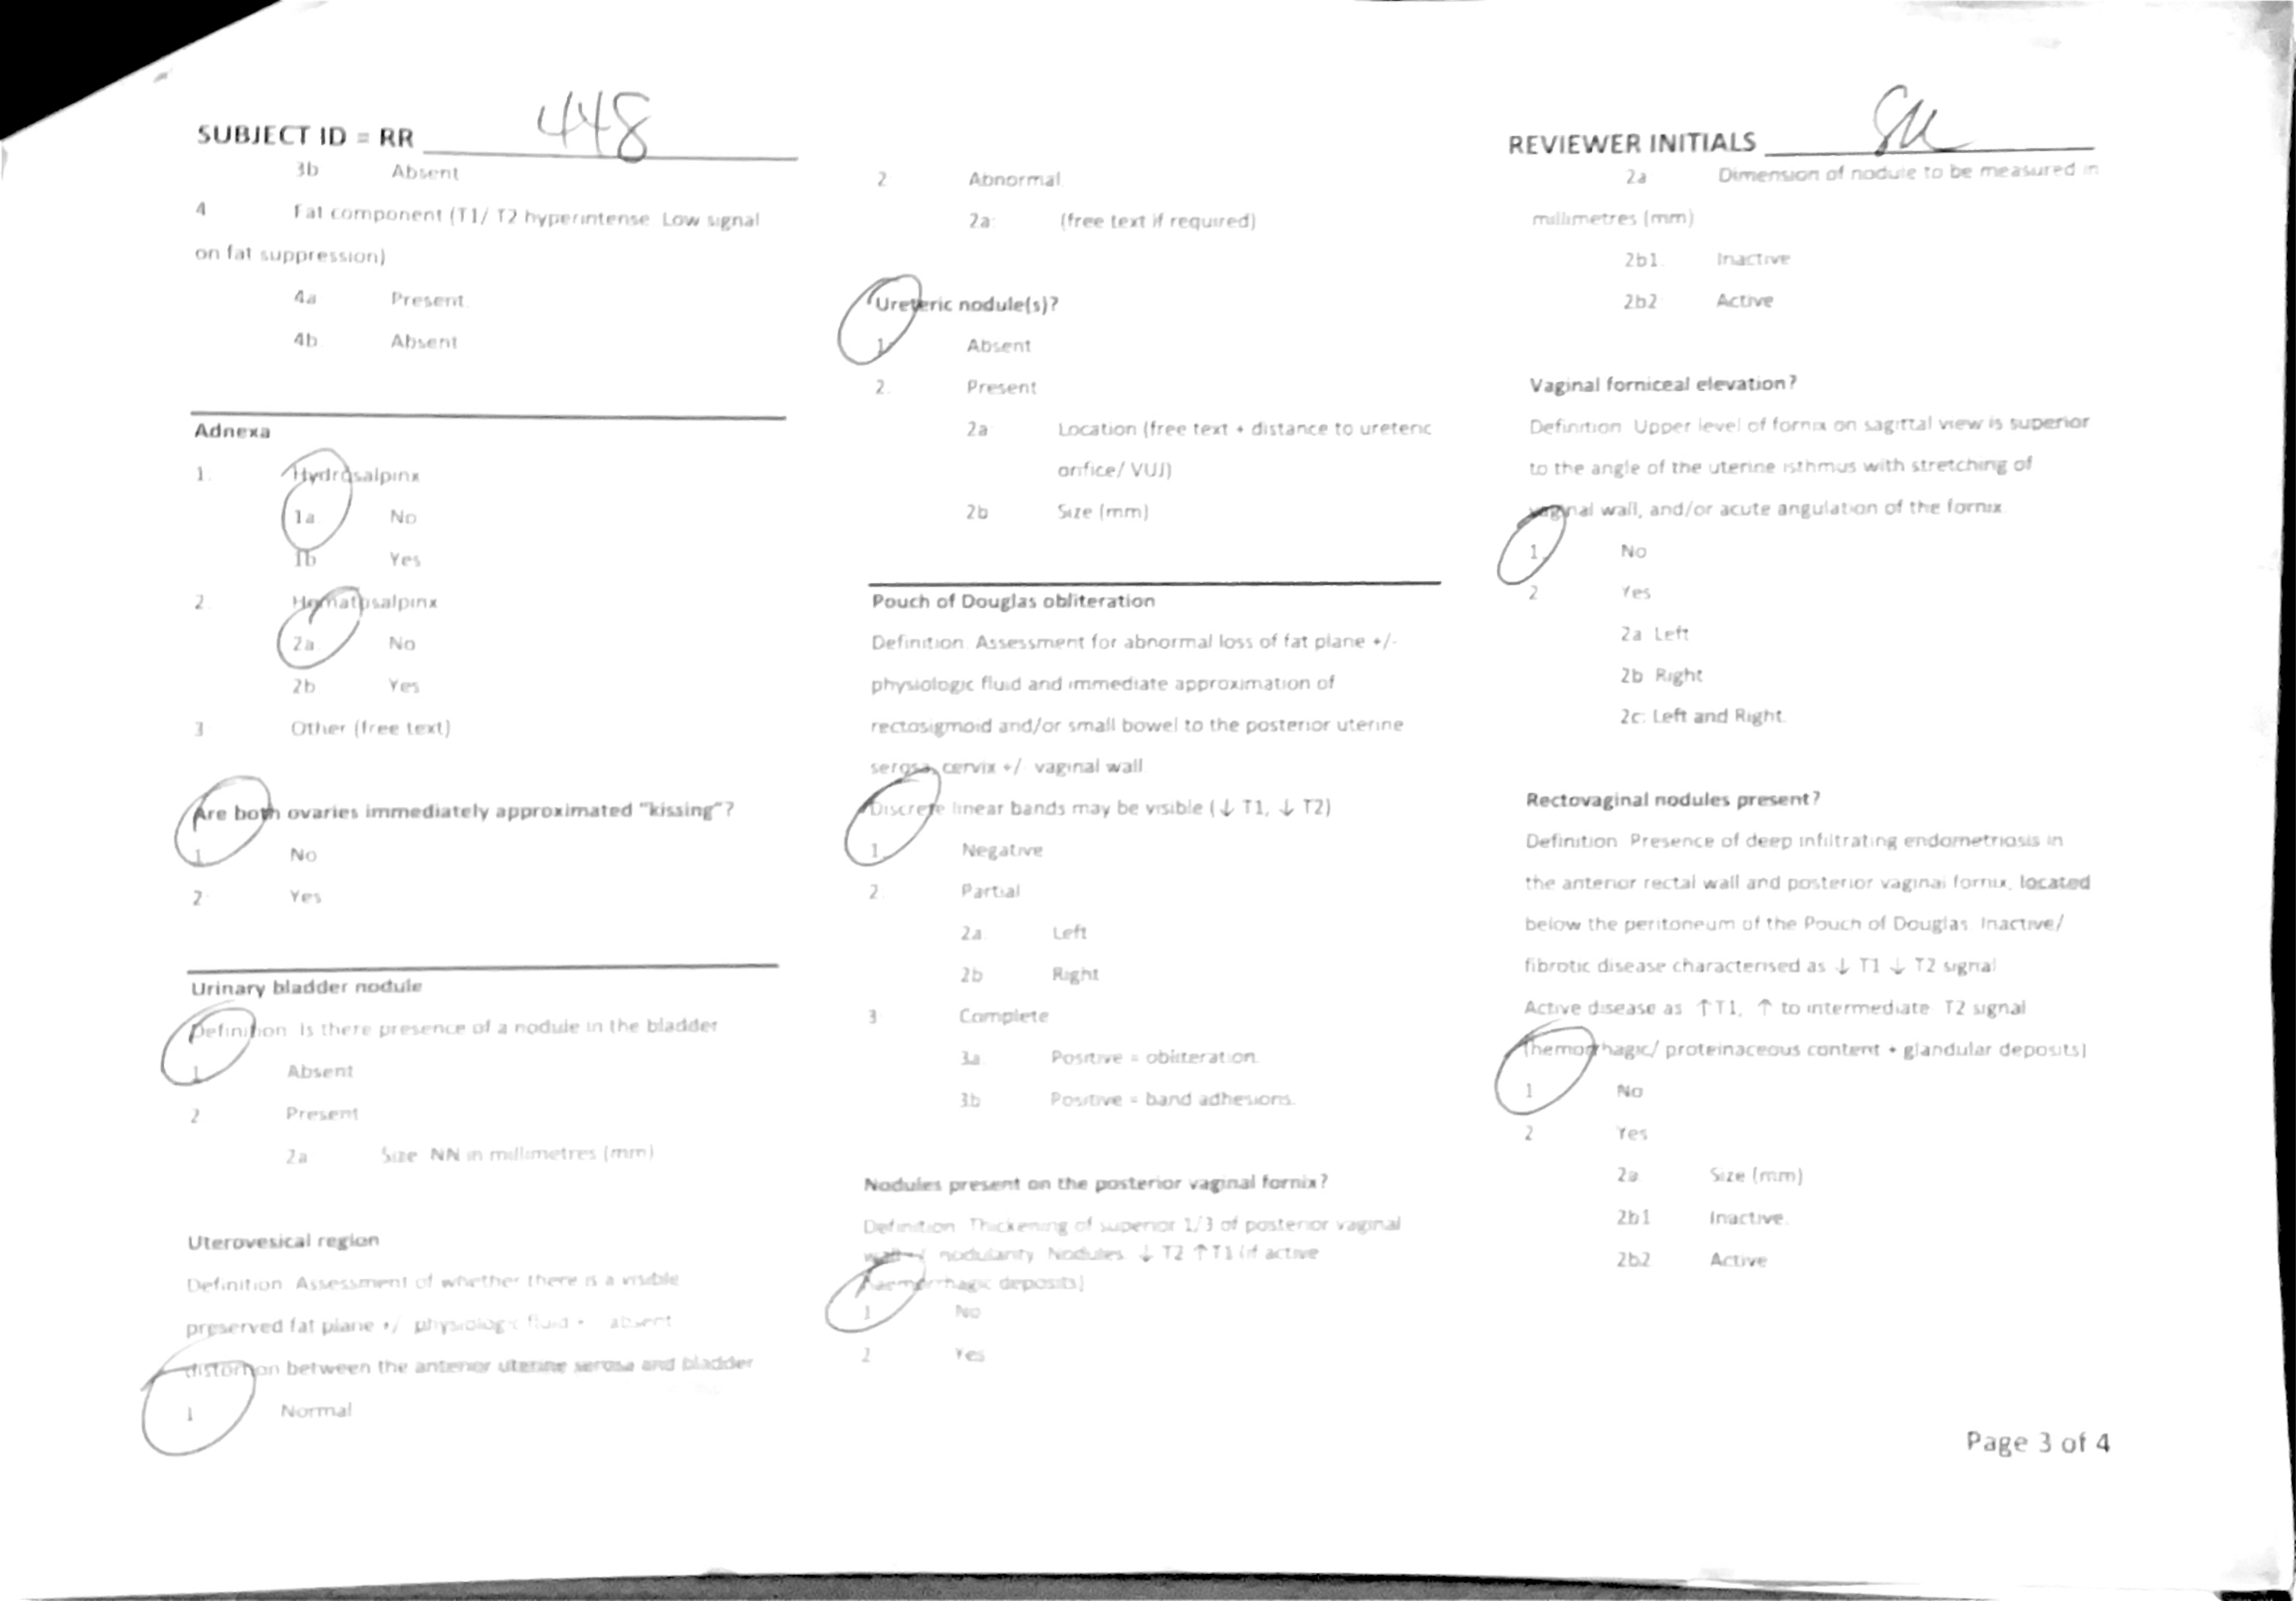 SUBJECT ID = RR 448
3b Absent
4 Fat component (T1/ T2 hyperintense. Low signal
on fat suppression)
4a Present.
4b. Absent
Adnexa
1. Hydrosalpinx
1a No
1b Yes
2. Hematosalpinx
2a No
2b Yes
3 Other (free text)
Are both ovaries immediately approximated "kissing"?
1 No
2 Yes
Urinary bladder nodule
Definition. Is there presence of a nodule in the bladder
1 Absent
2 Present
2a Size NN in millimetres (mm)
Uterovesical region
Definition. Assessment of whether there is a visible
preserved fat plane +/ physiologic fluid + absent
distortion between the anterior uterine serosa and bladder
1 Normal
2 Abnormal
2a: (free text if required)
Ureteric nodule(s)?
1. Absent
2. Present
2a Location (free text + distance to ureteric
orifice/ VUJ)
2b Size (mm)
Pouch of Douglas obliteration
Definition. Assessment for abnormal loss of fat plane +/-
physiologic fluid and immediate approximation of
rectosigmoid and/or small bowel to the posterior uterine
serosa, cervix +/ vaginal wall
Discrete linear bands may be visible (↓ T1, ↓ T2)
1. Negative
2. Partial
2a. Left
2b Right
3 Complete
3a. Positive = obliteration.
3b Positive = band adhesions.
Nodules present on the posterior vaginal fornix?
Definition. Thickening of superior 1/3 of posterior vaginal
nodularity. Nodules ↓ T2 ↑T1 (if active
haemorrhagic deposits)
1 No
2 Yes
REVIEWER INITIALS
2a Dimension of nodule to be measured in
millimetres (mm)
2b1. Inactive
2b2 Active
Vaginal forniceal elevation?
Definition. Upper level of fornix on sagittal view is superior
to the angle of the uterine isthmus with stretching of
vaginal wall, and/or acute angulation of the fornix.
1. No
2 Yes
2a Left
2b Right
2c: Left and Right.
Rectovaginal nodules present?
Definition. Presence of deep infiltrating endometriosis in
the anterior rectal wall and posterior vaginal fornix, located
below the peritoneum of the Pouch of Douglas. Inactive/
fibrotic disease characterised as ↓ T1 ↓ T2 signal
Active disease as ↑T1, ↑ to intermediate T2 signal
(hemorrhagic/ proteinaceous content + glandular deposits)
1 No
2 Yes
2a Size (mm)
2b1 Inactive.
2b2 Active
Page 3 of 4